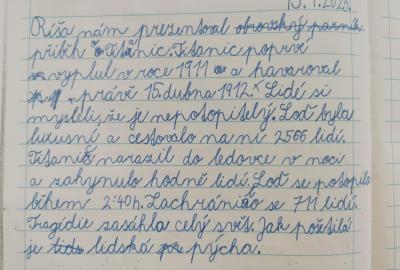 13.1.2026.
Ríša nám prezentoval obrovský parník
příběh o Titanic. Titanic poprvé
vyplul v roce 1911 a havaroval
právě 15. dubna 1912. Lidé si
mysleli, že je nepotopitelný. Loď byla
luxusní a cestovalo na ní 2566 lidí.
Titanic narazil do ledovce v noci
a zahynulo hodně lidí. Loď se potopila
během 2:40h. Zachránilo se 711 lidí.
Tragídie zasáhla celý svět. Jak pošetilá
je lidská pýcha.